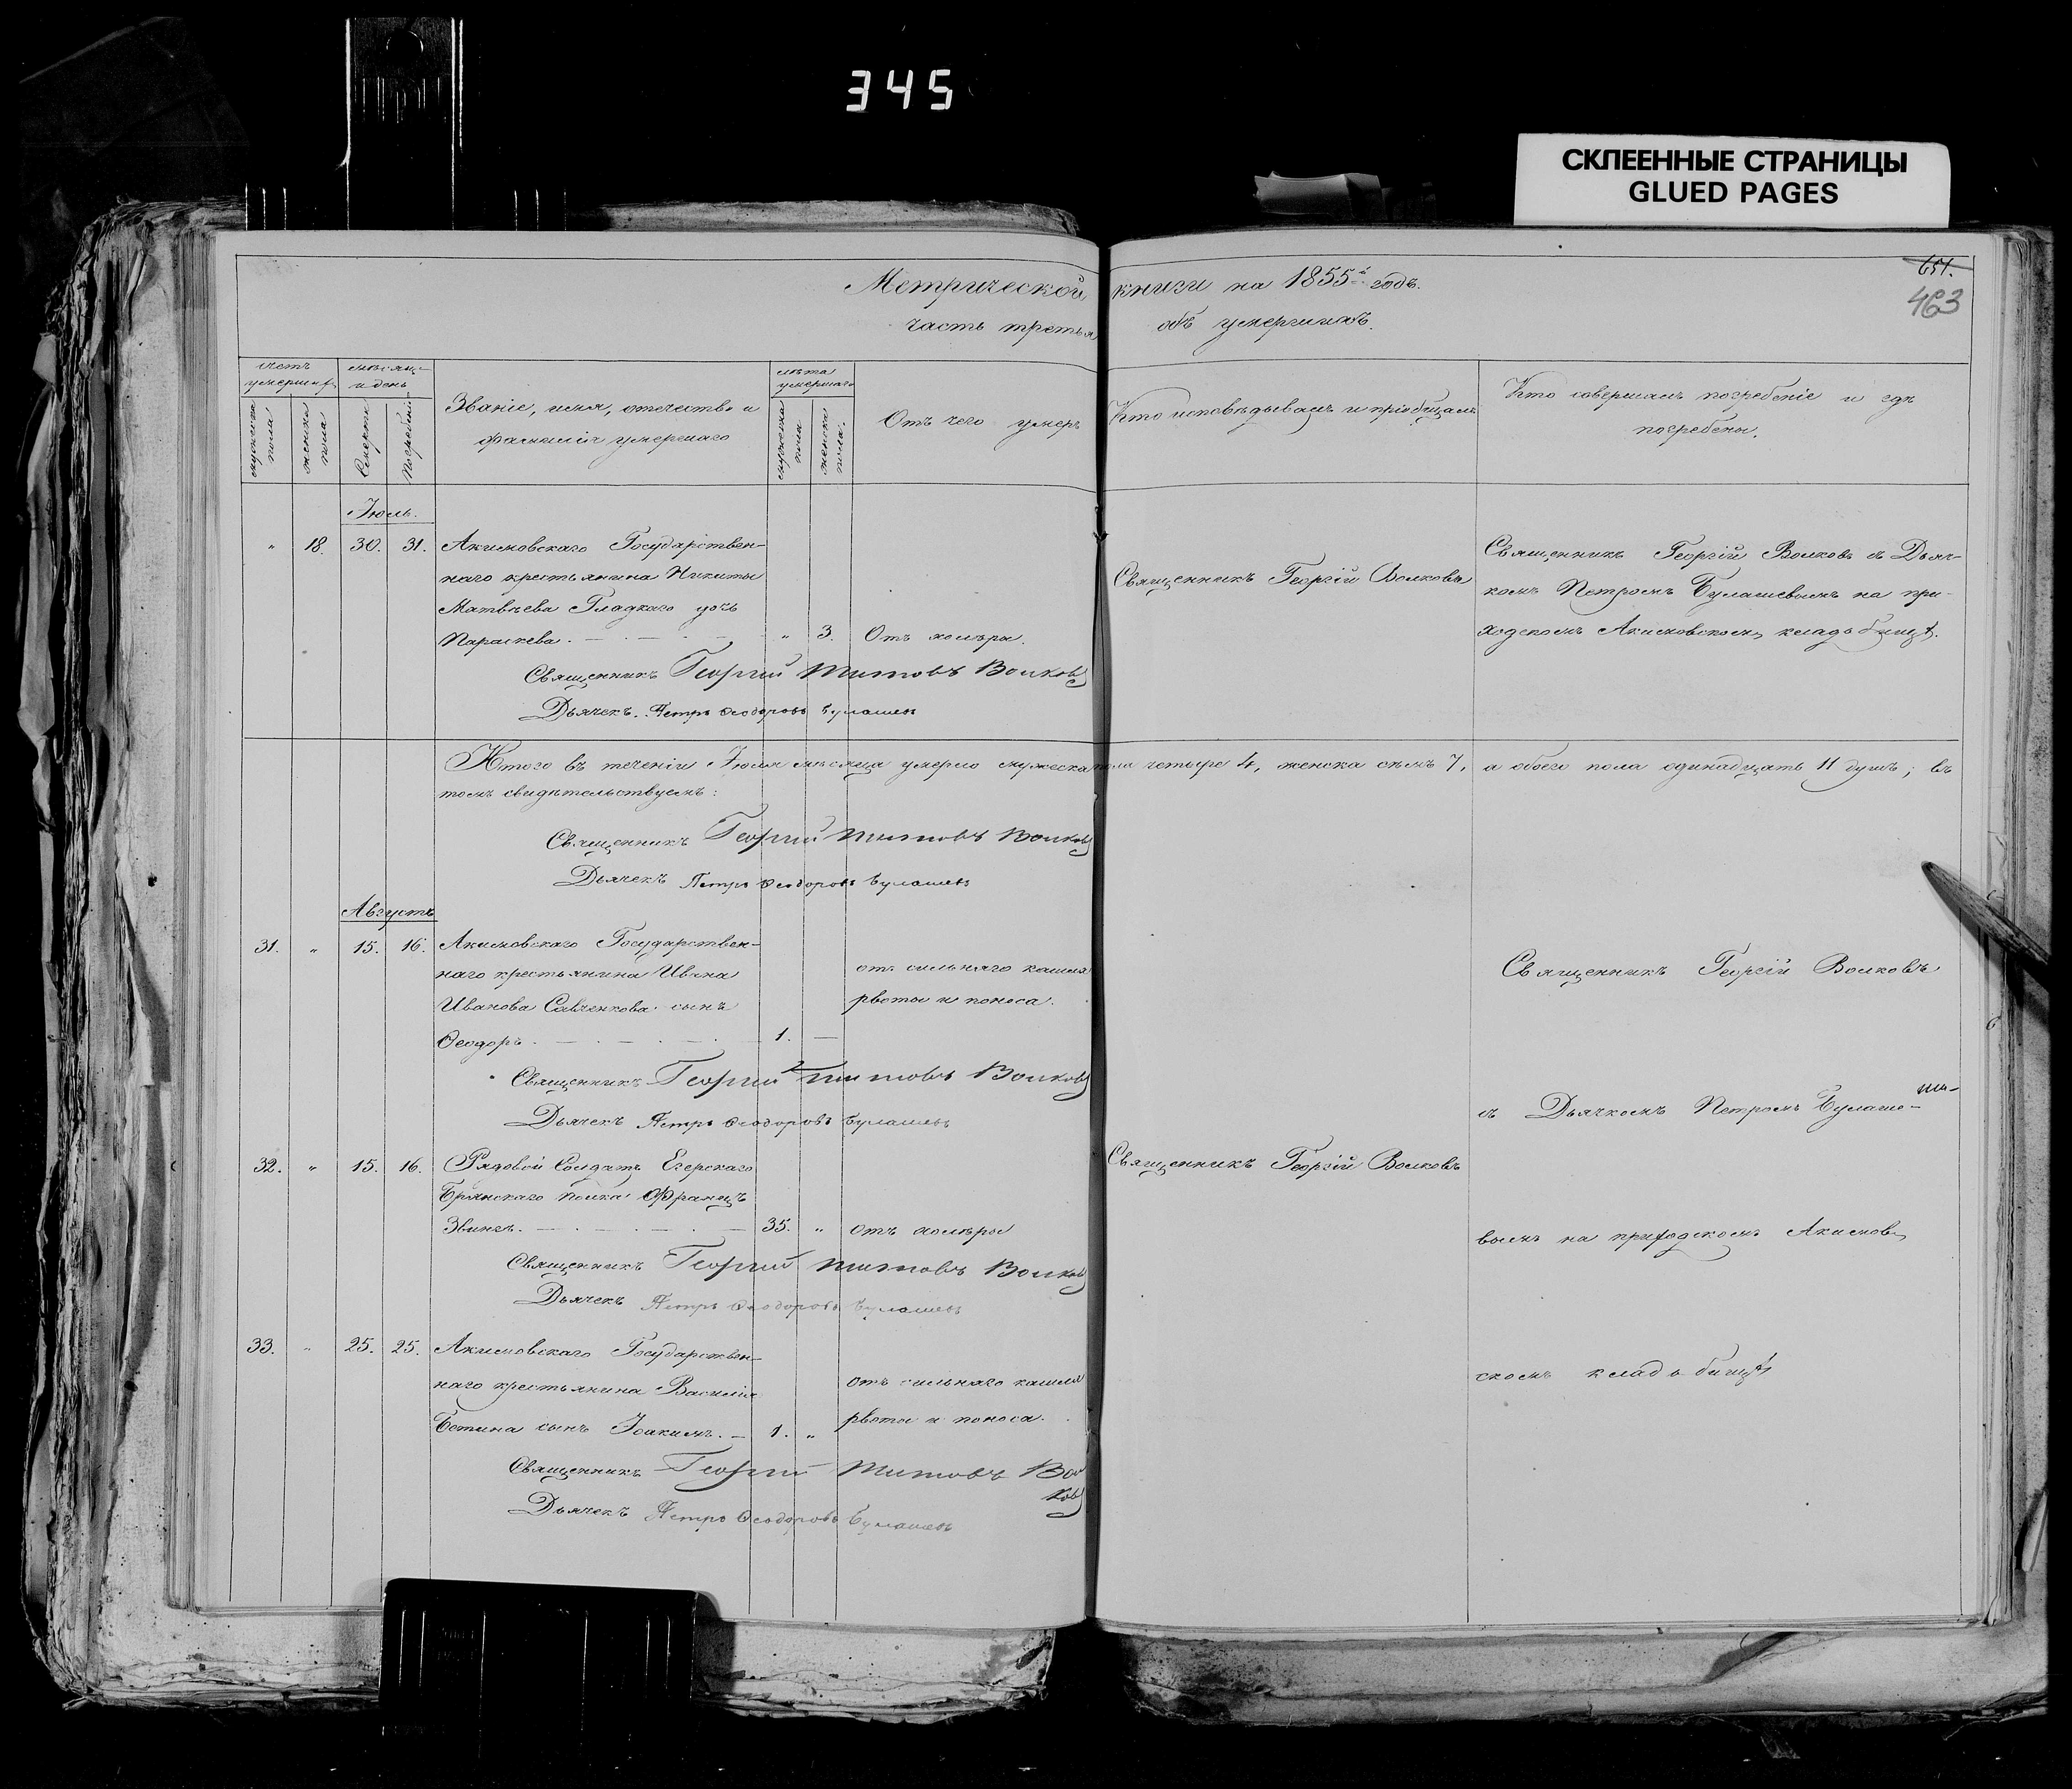 345
СКЛЕЕННЫЕ СТРАНИЦЫ
GLUED PAGES
651.
463
Метрической книги на 1855й годъ.
часть третья объ умершихъ.
счетъ умершихъ
мужеска пола
женска пола
мѣсяцъ и день
Смерти
Погребенія
Званіе, имя, отечество и
фамилія умершаго
лѣта умершаго
мужеска пола
женска пола.
Отъ чего умеръ
Кто исповѣдывалъ и пріобщалъ
Кто совершалъ погребеніе и гдѣ
погребены.
Іюль.
" 18. 30. 31. Акимовскаго Государствен-
наго крестьянина Никиты
Матвѣева Гладкаго дочь
Параскева. " 3. Отъ холеры.
Священникъ Георгій Волковъ
Священникъ Георгій Волковъ съ Дьяч-
комъ Петромъ Булашевымъ на при-
ходскомъ Акимовскомъ кладьбищѣ.
Священникъ Георгий Титовъ Волковъ
Дьячекъ Петръ Ѳеодоровъ Булашевъ
Итого въ теченіи Іюля мѣсяца умерло мужеска пола четыре 4, женска семь 7, а обоего пола одинадцать 11 душъ; въ
томъ свидѣтельствуемъ:
Священникъ Георгий Титовъ Волковъ
Дьячекъ Петръ Ѳеодоровъ Булашевъ
Августъ
31. " 15. 16. Акимовскаго Государствен-
наго крестьянина Ивана
Иванова Савченкова сынъ
Ѳеодоръ. 1. —
отъ сильнаго кашля
рвоты и поноса.
Священникъ Георгій Волковъ
Священникъ Георгий Титовъ Волковъ
Дьячекъ Петръ Ѳеодоровъ Булашевъ
съ Дьячкомъ Петромъ Булаше-
32. " 15. 16. Рядовой Солдатъ Егерскаго
Брянскаго полка Францъ
35. " отъ холеры
Священникъ Георгій Волковъ
вымъ на приходскомъ Акимов-
Священникъ Георгий Титовъ Волковъ
Дьячекъ Петръ Ѳеодоровъ Булашевъ
33. " 25. 25. Акимовскаго Государствен-
наго крестьянина Василія
сынъ Іоакимъ. — 1. "
отъ сильнаго кашля
рвоты и поноса.
скомъ кладьбищѣ
Священникъ Георгий Титовъ Вол
ковъ
Дьячекъ Петръ Ѳеодоровъ Булашевъ